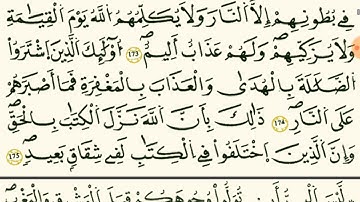 فِے بُطُونِهِمُۥٓ إِلَّا اَ۬لنَّارَ وَلَا يُكَلِّمُهُمُ اُ۬للَّهُ يَوْمَ اَ۬لْقِيَٰمَةِ
وَلَا يُزَكِّيهِمْ وَلَهُمْ عَذَابٌ اَلِيمٌ ١٧٣ اُوْلَٰٓئِكَ اَ۬لذِينَ اَ۪شْتَرَوُاْ
اُ۬لضَّلَٰلَةَ بِالْهُد۪يٰ وَالْعَذَابَ بِالْمَغْفِرَةِ فَمَآ أَصْبَرَهُمْ
عَلَي اَ۬لنّ۪ارِ ١٧٤ ذَٰلِكَ بِأَنَّ اَ۬للَّهَ نَزَّلَ اَ۬لْكِتَٰبَ بِالْحَقِّ
وَإِنَّ اَ۬لذِينَ اَ۪خْتَلَفُواْ فِے اِ۬لْكِتَٰبِ لَفِے شِقَاقِۢ بَعِيدٍ ١٧٥